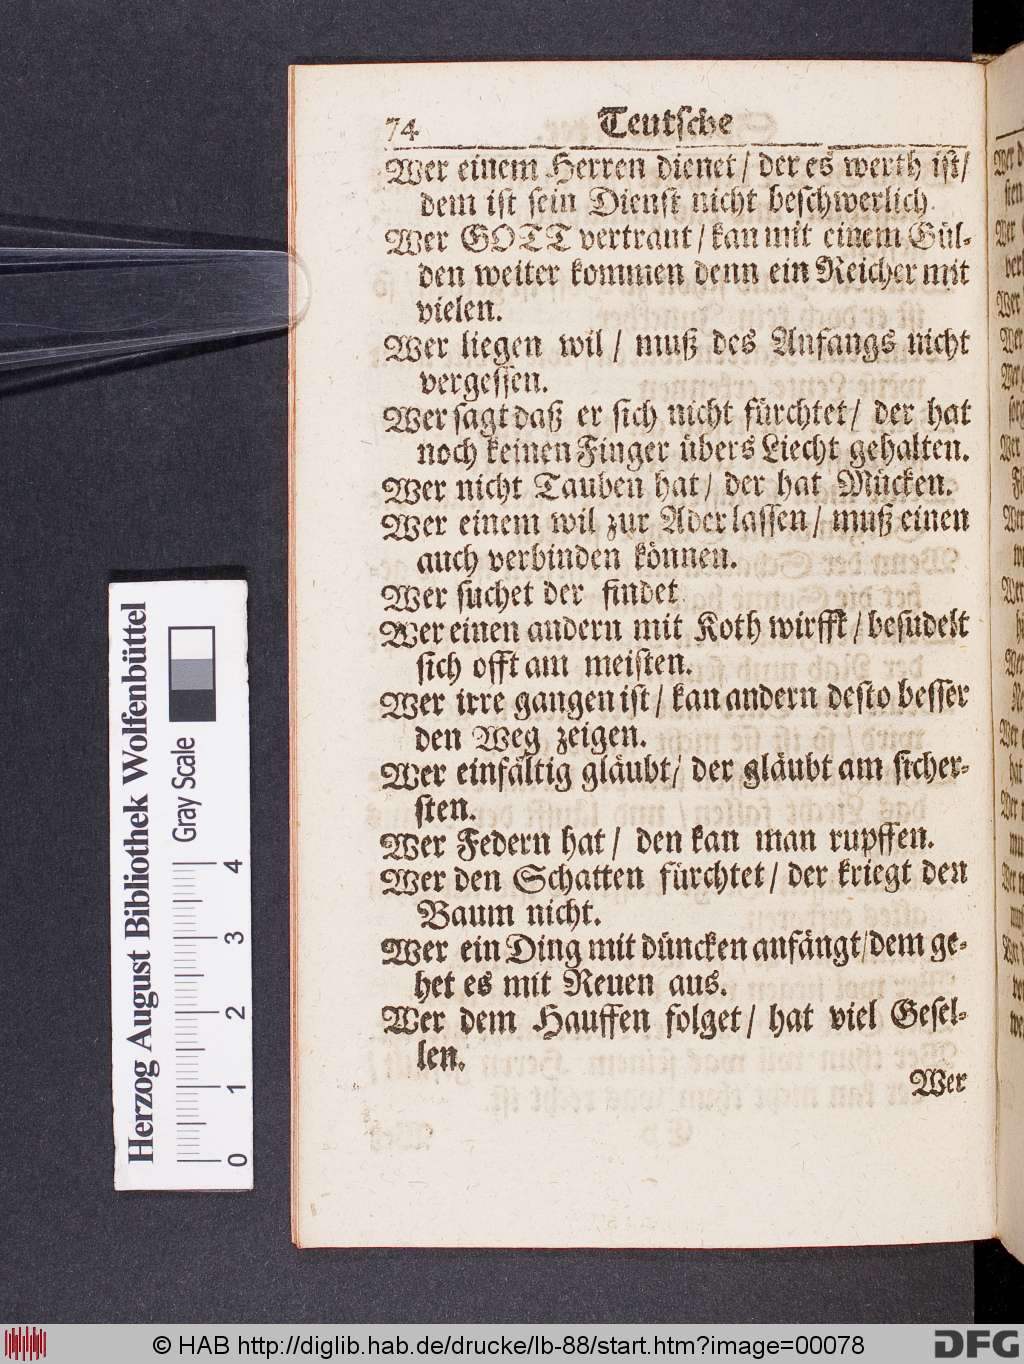 74 Teutsche
Wer einem Herren dienet / der es werth ist /
dem ist sein Dienst nicht beschwerlich.
Wer GOTT vertraut / kan mit einem Gül-
den weiter kommen denn ein Reicher mit
vielen.
Wer liegen wil / muß des Anfangs nicht
vergessen.
Wer sagt daß er sich nicht fürchtet / der hat
noch keinen Finger übers Liecht gehalten.
Wer nicht Tauben hat / der hat Mücken.
Wer einem wil zur Ader lassen / muß einen
auch verbinden können.
Wer suchet der findet
Wer einen andern mit Koth wirfft / besudelt
sich offt am meisten.
Wer irre gangen ist / kan andern desto besser
den Weg zeigen.
Wer einfältig gläubt / der gläubt am sicher-
sten.
Wer Federn hat / den kan man rupffen.
Wer den Schatten fürchtet / der kriegt den
Baum nicht.
Wer ein Ding mit düncken anfängt / dem ge-
het es mit Reuen aus.
Wer dem Hauffen folget / hat viel Gesel-
len.
Wer
Herzog August Bibliothek Wolfenbüttel
Gray Scale
0 1 2 3 4
© HAB http://diglib.hab.de/drucke/lb-88/start.htm?image=00078
DFG